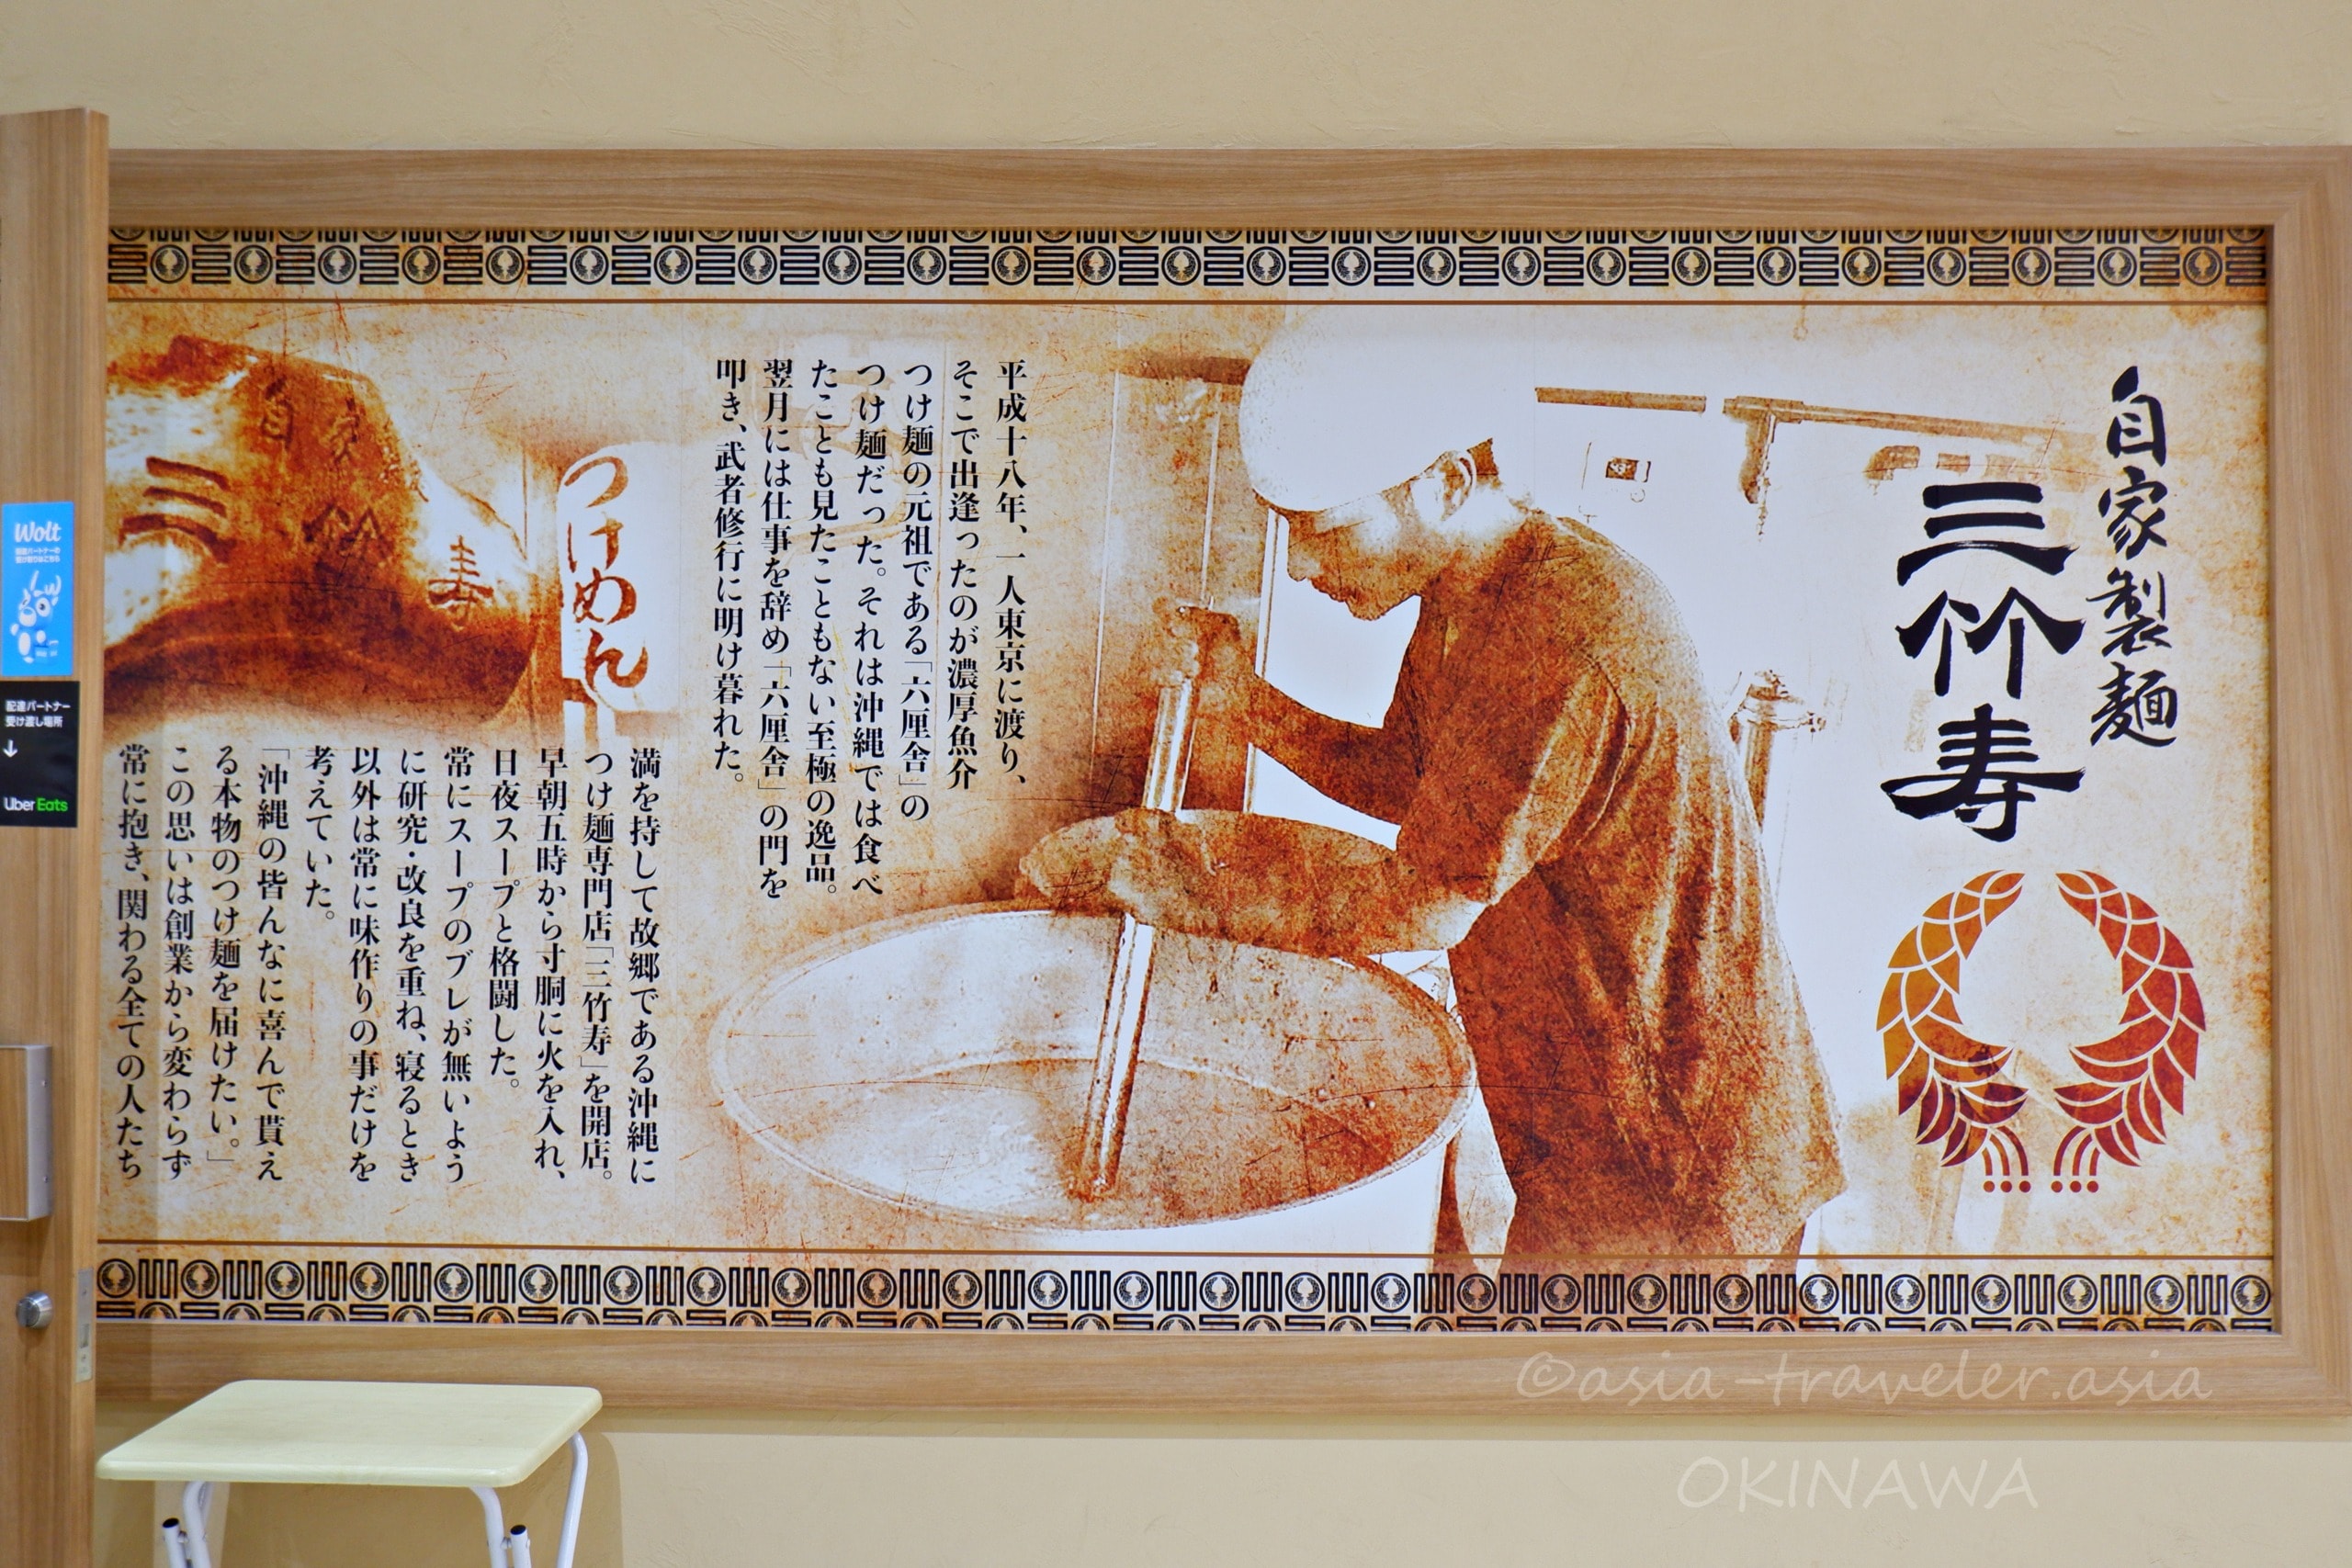 自家製麺
三竹寿
平成十八年、一人東京に渡り、
そこで出逢ったのが濃厚魚介
つけ麺の元祖である「六厘舎」の
つけ麺だった。それは沖縄では食べ
たことも見たこともない至極の逸品。
翌月には仕事を辞め「六厘舎」の門を
叩き、武者修行に明け暮れた。
満を持して故郷である沖縄に
つけ麺専門店「三竹寿」を開店。
早朝五時から寸胴に火を入れ、
日夜スープと格闘した。
常にスープのブレが無いよう
に研究・改良を重ね、寝るとき
以外は常に味作りの事だけを
考えていた。
「沖縄の皆んなに喜んで貰え
る本物のつけ麺を届けたい。」
この思いは創業から変わらず
常に抱き、関わる全ての人たち
つけめん
自家製
三竹寿
Wolt
配達パートナーの
受け取りはこちら
配達パートナー
受け渡し場所
↓
Uber Eats
©asia-traveler.asia
OKINAWA